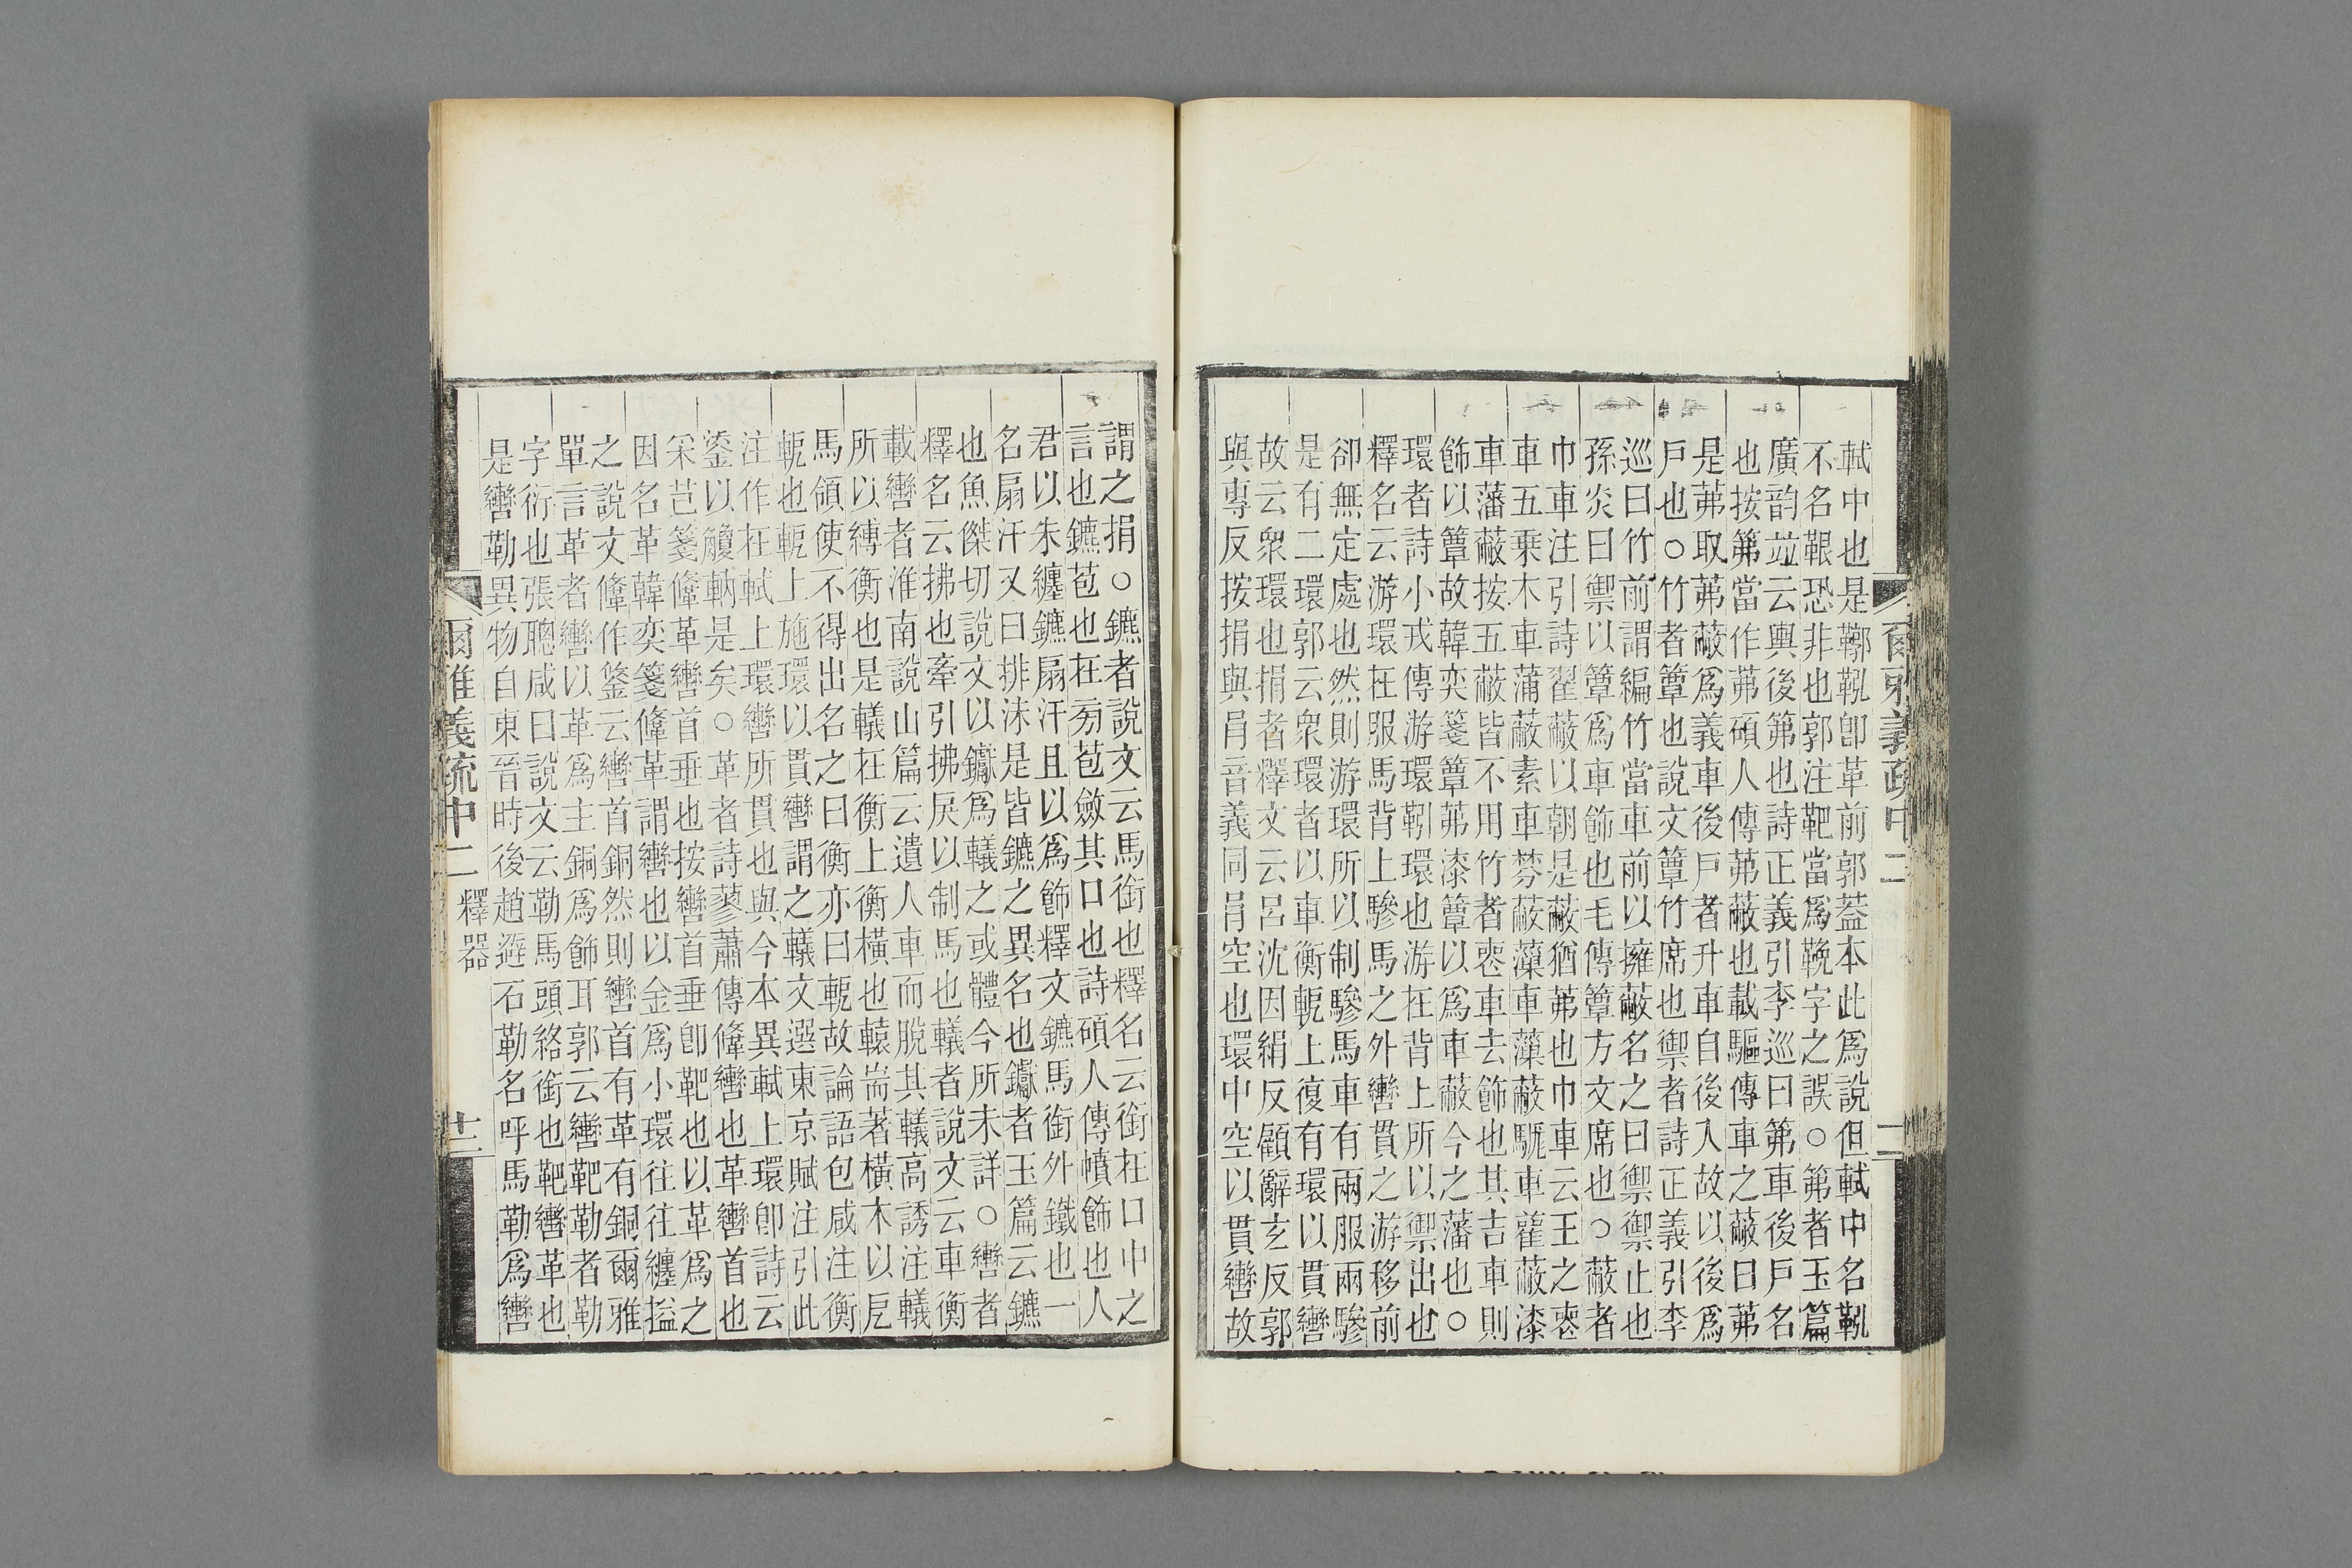 軾中也是鞹靷卽革前郭葢本此爲說但軾中名靷
不名鞎恐非也郭注靶當爲鞔字之誤○笰者玉篇
廣韵竝云輿後笰也詩正義引李巡曰笰車後戸名
也按笰當作茀碩人傳茀蔽也載驅傳車之蔽曰茀
是茀取茀蔽爲義車後戸者升車自後入故以後爲
戸也○竹者簟也說文簟竹席也禦者詩正義引李
巡曰竹前謂編竹當車前以擁蔽名之曰禦禦止也
孫炎曰禦以簟爲車飾也毛傳簟方文席也○蔽者
巾車注引詩翟蔽以朝是蔽猶茀也巾車云王之喪
車五乗木車蒲蔽素車棼蔽薻車薻蔽駹車雚蔽漆
車藩蔽按五蔽皆不用竹者喪車去飾也其吉車則
飾以簟故韓奕箋簟茀漆簟以爲車蔽今之藩也○
環者詩小戎傳游環靷環也游在背上所以禦出也
釋名云游環在服馬背上驂馬之外轡貫之游移前
卻無定處也然則游環所以制驂馬車有兩服兩驂
是有二環郭云衆環者以車衡軛上復有環以貫轡
故云衆環也捐者釋文云呂沈因絹反顧辭玄反郭
與專反按捐與肙音義同肙空也環中空以貫轡故
爾雅義疏中二
謂之捐○鑣者說文云馬銜也釋名云銜在口中之
言也鑣苞也在旁苞斂其口也詩碩人傳幩飾也人
君以朱纏鑣扇汗且以爲飾釋文鑣馬銜外鐵也一
名扇汗又曰排沫是皆鑣之異名也钀者玉篇云鑣
也魚傑切說文以钀爲轙之或體今所未詳○轡者
釋名云拂也牽引拂戾以制馬也轙者說文云車衡
載轡者淮南說山篇云遺人車而脫其轙高誘注轙
所以縛衡也是轙在衡上衡橫也轅耑著橫木以戹
馬領使不得出名之曰衡亦曰軛故論語包咸注衡
軛也軛上施環以貫轡謂之轙文選東京賦注引此
注作在軾上環轡所貫也與今本異軾上環卽詩云
鋈以觼軜是矣○革者詩蓼蕭傳鞗轡也革轡首也
采芑箋鞗革轡首垂也按轡首垂卽靶也以革爲之
因名革韓奕箋鞗革謂轡也以金爲小環往往纏搤
之說文鞗作鋚云轡首銅然則轡首有革有銅爾雅
單言革者轡以革爲主銅爲飾耳郭云轡靶勒者勒
字衍也張聰咸曰說文云勒馬頭絡銜也靶轡革也
是轡勒異物自東晉時後趙避石勒名呼馬勒爲轡
爾雅義疏中二 釋器 十二